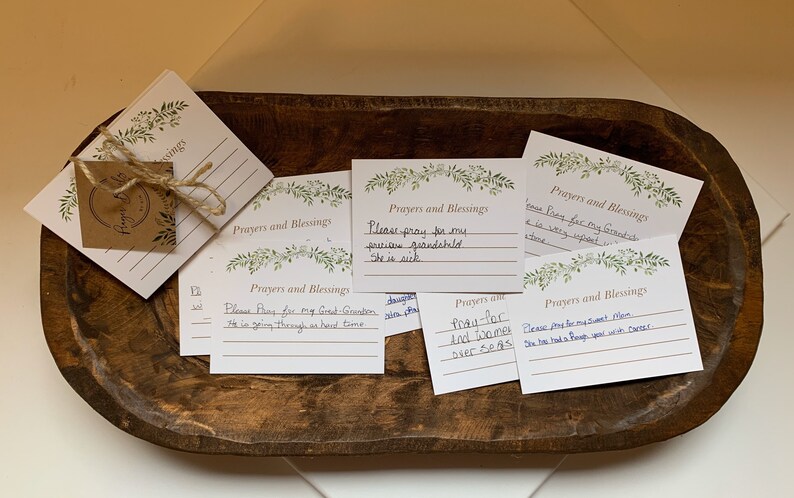 Blessings
Prayer
Prayers and Blessings
Prayers and Blessings
Please Pray for my Great-Grandson
He is going through a hard time.
Prayers and Blessings
Please pray for my
precious grandchild.
She is sick.
daughter
Prayers and Blessings
Please Pray for my
is very upset
time.
Pray for
and Women
over seas
Prayers and Blessings
Please pray for my sweet Mom.
She has had a rough year with cancer.